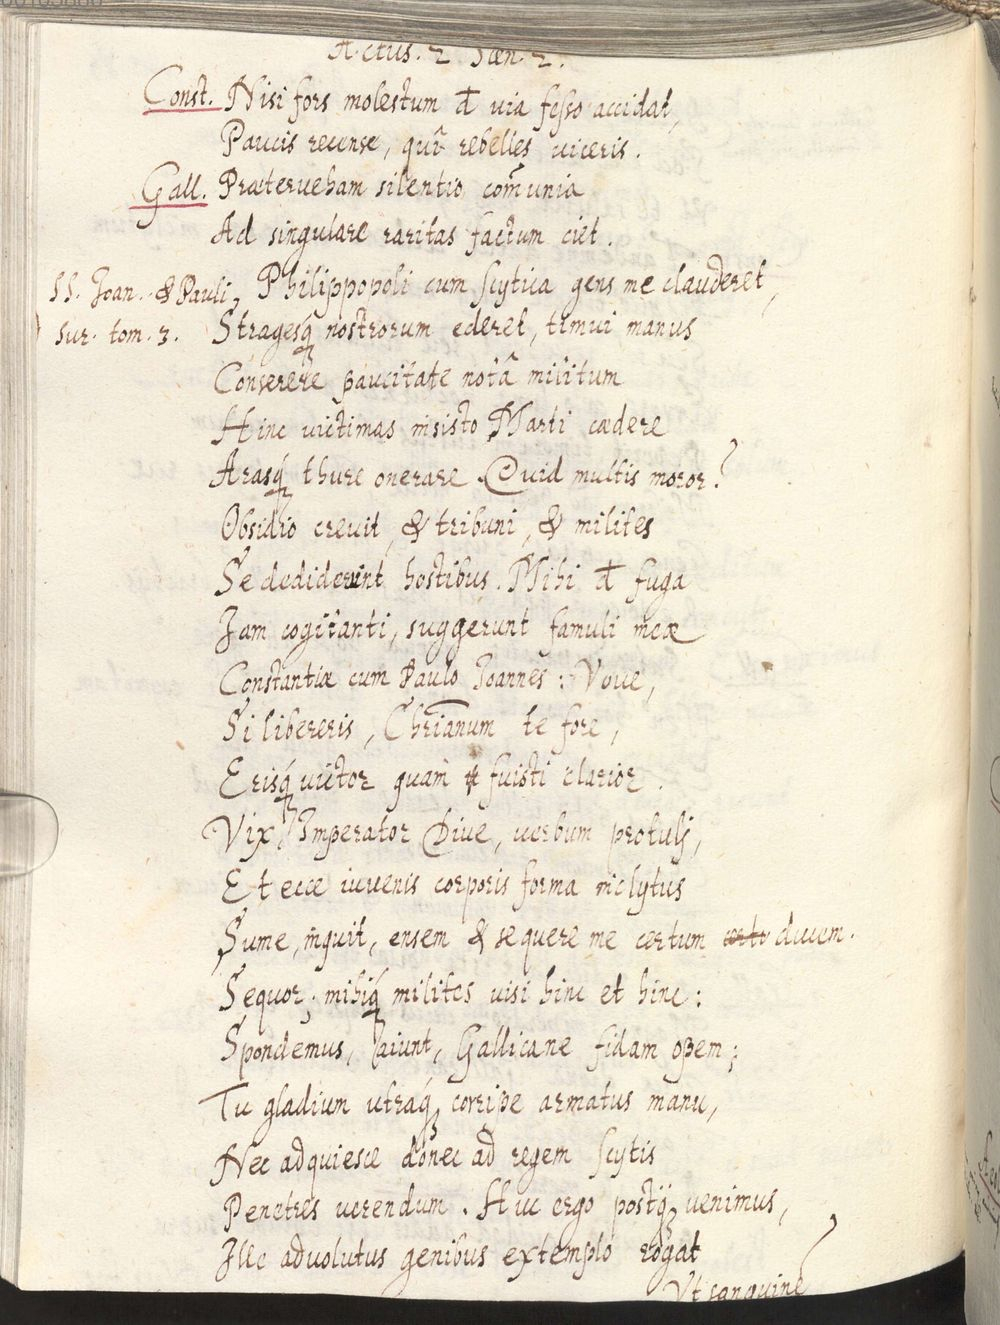 Actus. 2 Scen. 2.
Const. Nisi fors molestum ē via fesso accidat,
Paucis recense, quî rebelles viceris.
Gall. Præterveham silentio com̃unia
Ad singulare raritas factum ciet.
SS. Joan. & Pauli, Philippopoli cum Scytica gens me clauderet,
Sur. tom. 3. Stragesq́ nostrorum ederet, timui manus
Conserere paucitate notâ militum
Hinc victimas insisto Marti cædere
Arasq́ thure onerare. Quid multis moror?
Obsidio crevit, & tribuni, & milites
Se dediderunt hostibus. Mihi ē fuga
Jam cogitanti, suggerunt famuli meæ
Constantiæ cum Paulo Joannes: Vove,
Si libereris, Chrianum te fore,
Erisq́ victor quam fuisti clarior.
Vix, Imperator Dive, verbum protulj,
Et ecce iuvenis corporis forma inclytus
Sume, inquit, ensem & sequere me certum certo ducem.
Sequor; mihiq́ milites visi hinc et hinc:
Spondemus, aiunt, Gallicane fidam opem;
Tu gladium utraq́ corripe armatus manu,
Nec adquiesce donec ad regem Scytis
Penetres verendum. Huc ergo postq̃ venimus,
Ille advolutus genibus extemplo rogat
Vt sanguine